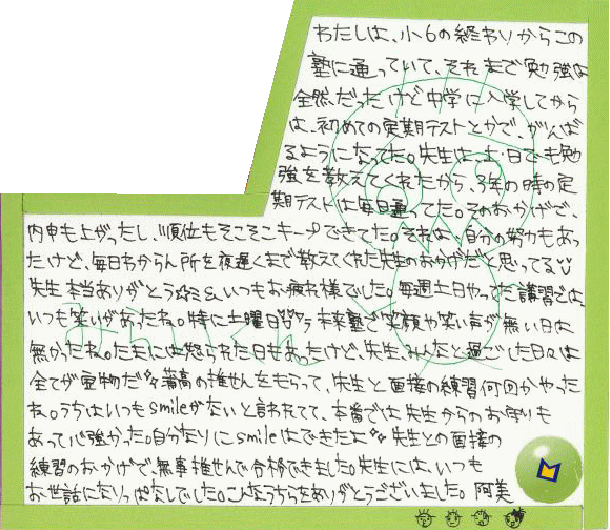 わたしは、小6の終わりからこの
塾に通っていて、それまで勉強は
全然だったけど中学に入学してから
は、初めての定期テストとかで、がんば
るようになってた。先生は土・日でも勉
強を教えてくれたから、3年の時の定
期テストは毎日通ってた。そのおかげで、
内申も上がったし、順位もそこそこキープできてた。それは、自分の努力もあっ
たけど、毎日わからん所を夜遅くまで教えてくれた先生のおかげだと思ってる
先生本当ありがとう☆ミ いつもお疲れ様でした。毎週土日やってた講習では、
いつも笑いがあったね。特に土曜日 本来塾で笑顔や笑い声が無い日は
無かったね。たまには怒られた日もあったけど、先生、みんなと過ごした日々は
全てが宝物だ 高の推せんをもらって、先生と面接の練習何回かやった
ね。うちはいつもsmileがないと言われてて、本番では先生からのお守りも
あって心強かった。自分なりにsmileはできたよ 先生との面接の
練習のおかげで無事推せんで合格できました。先生には、いつも
お世話になりっぱなしでした。こんなうちらをありがとうございました。阿美